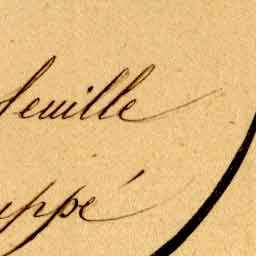 feuille
uppé